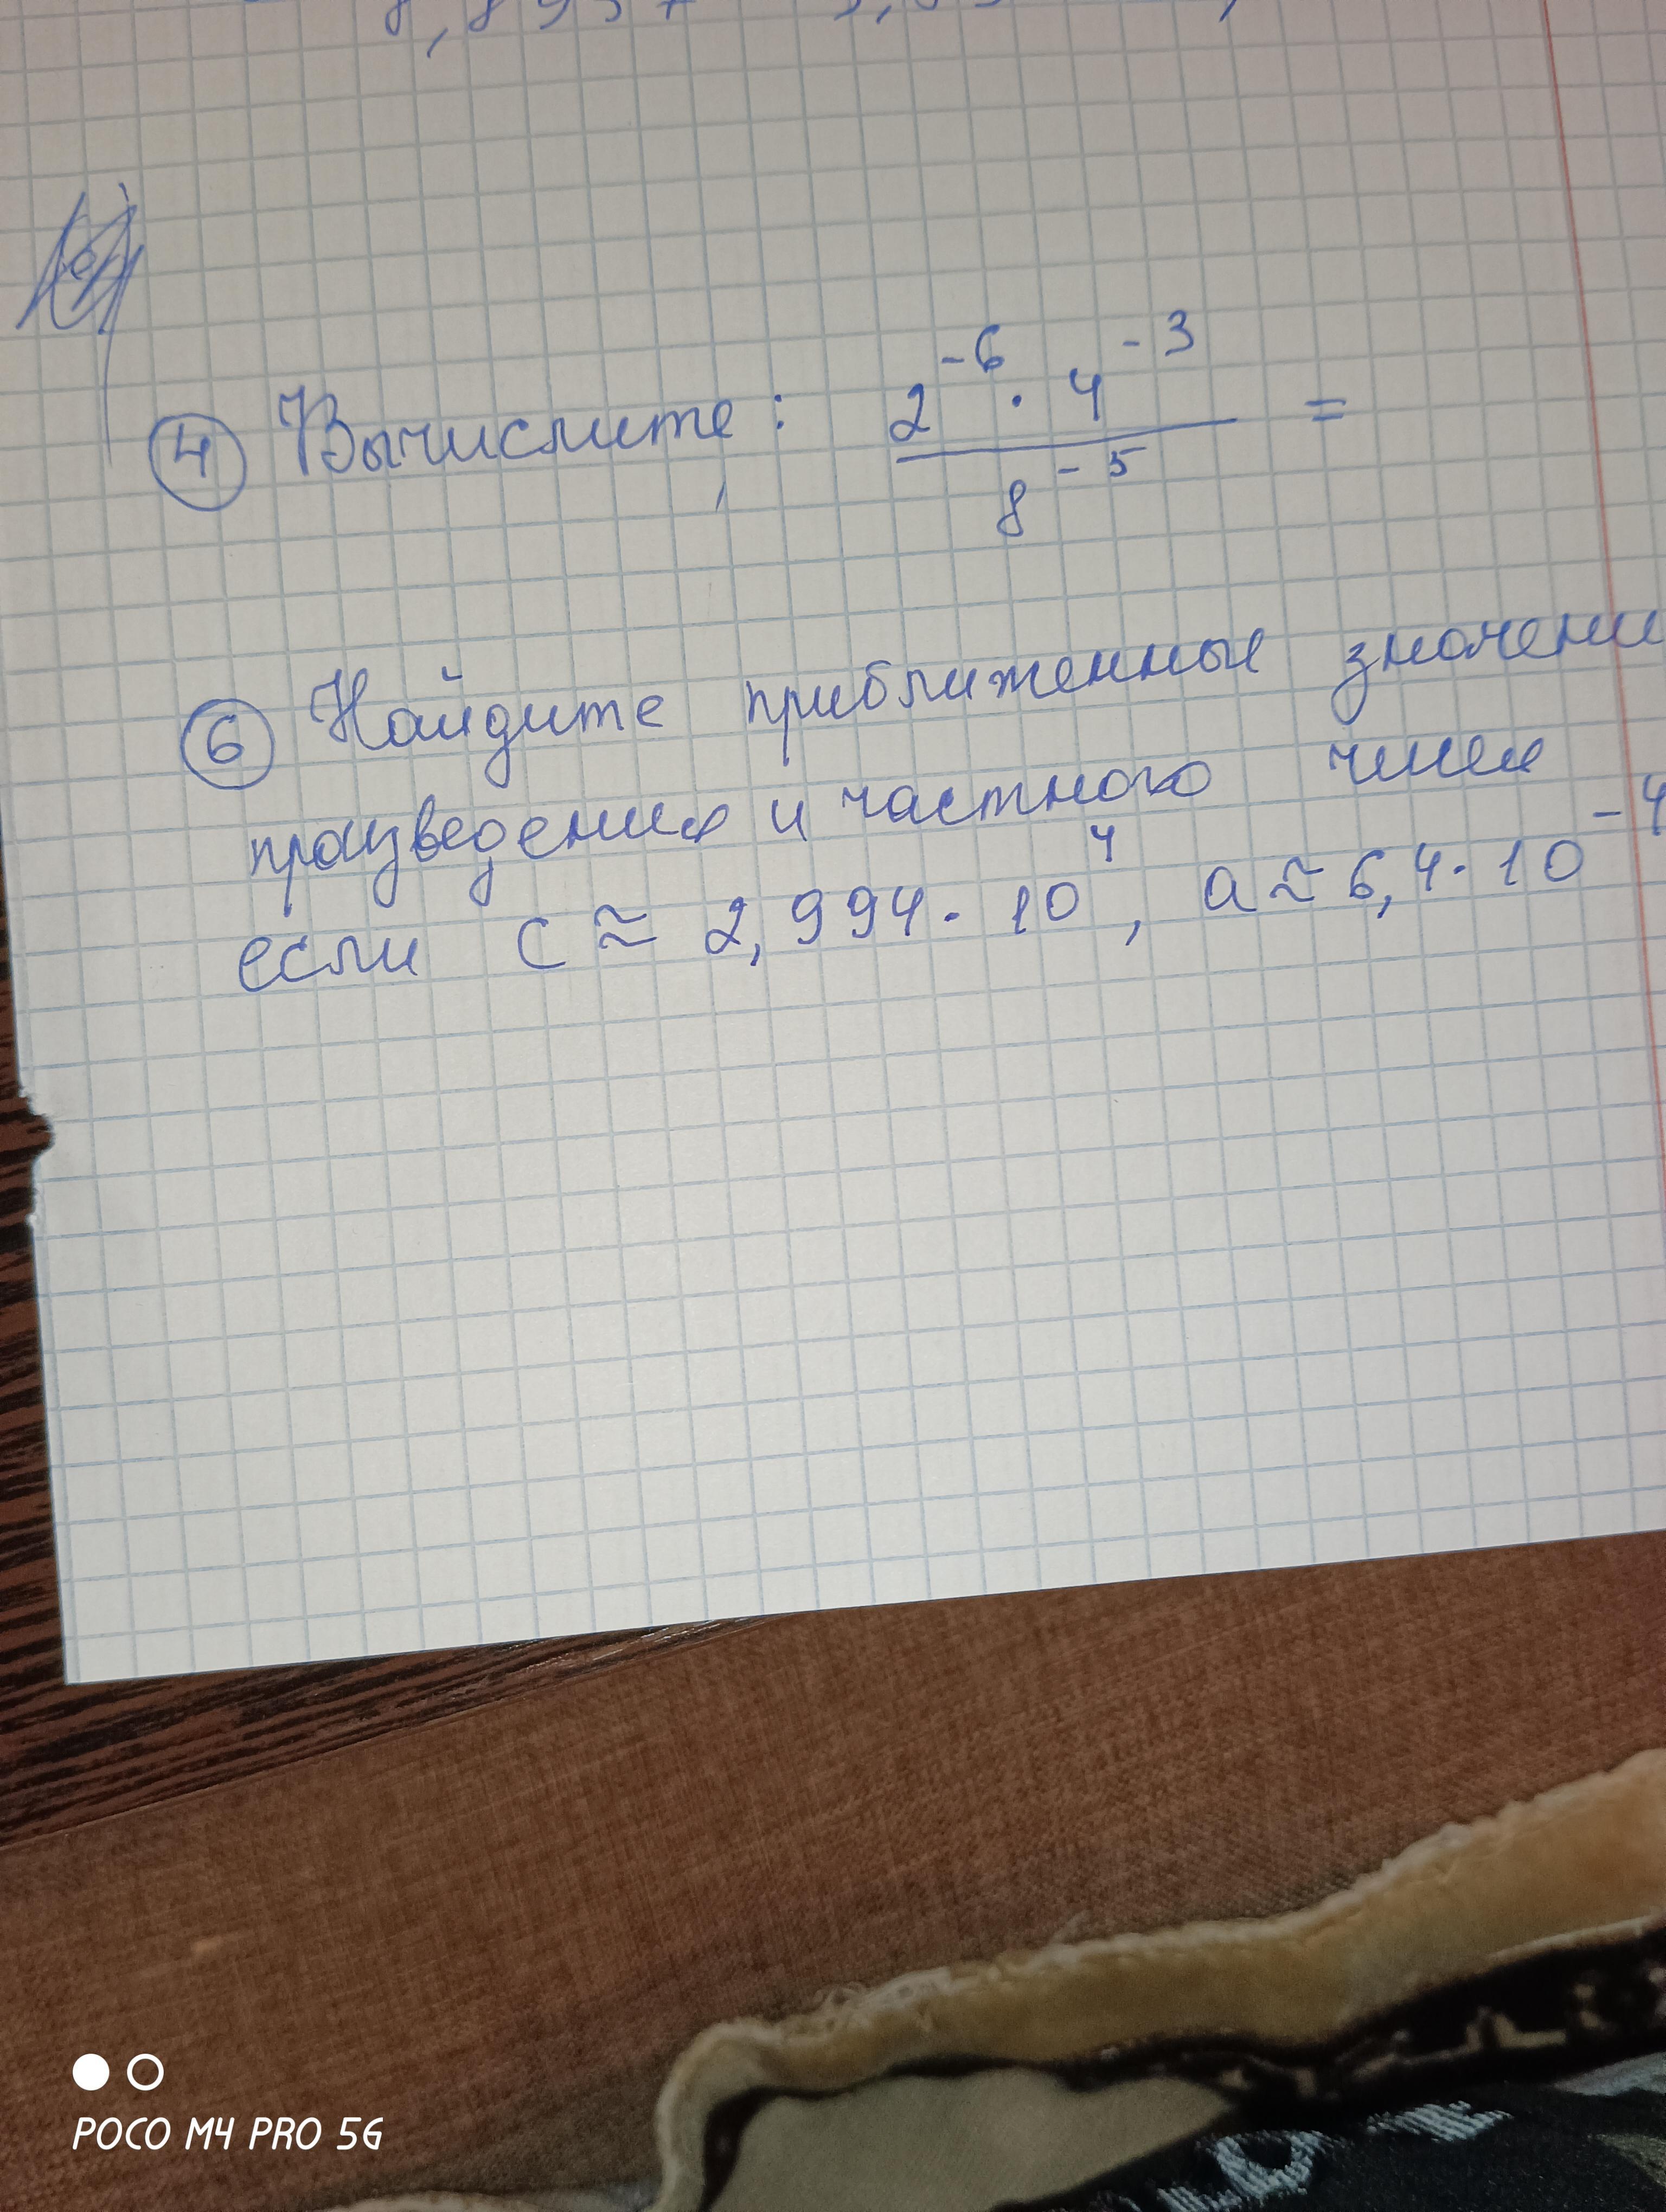 ④ Вычислите: 2^-6 · 4^-3 / 8^-5 =
⑥ Найдите приближенные значени
произведения и частного чисел
если c ≈ 2,994 · 10^4, a ≈ 6,4 · 10^-4
POCO M4 PRO 5G